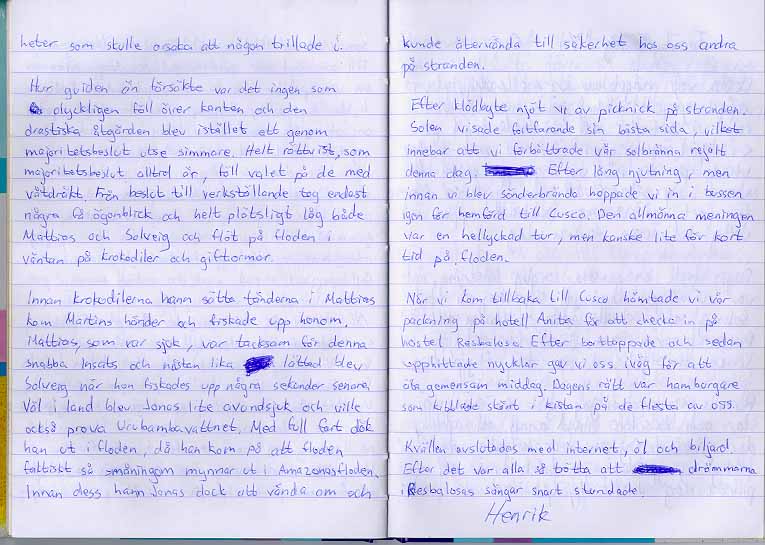 heter som skulle orsaka att någon trillade i.
Hur guiden än försökte var det ingen som
olyckligen föll över kanten och den
drastiska åtgärden blev istället ett genom
majoritetsbeslut utse simmare. Helt rättvist, som
majoritetsbeslut alltid är, föll valet på de med
våtdräkt. Från beslut till verkställande tog endast
några få ögonblick och helt plötsligt låg både
Mattias och Solveig och flöt på floden i
väntan på krokodiler och giftormar.
Innan krokodilerna hann sätta tänderna i Mattias
kom Martins händer och fiskade upp honom.
Mattias, som var sjuk, var tacksam för denna
snabba insats och nästan lika lättad blev
Solveig när hon fiskades upp några sekunder senare.
Väl i land blev Jonas lite avundsjuk och ville
också prova Urubambavattnet. Med full fart dök
han ut i floden, då han kom på att floden
faktiskt så småningom mynnar ut i Amazonasfloden.
Innan dess hann Jonas dock att vända om och
kunde återvända till säkerhet hos oss andra
på stranden.
Efter klädbyte njöt vi av picknick på stranden.
Solen visade fortfarande sin bästa sida, vilket
innebar att vi förbättrade vår solbränna rejält
denna dag. Efter lång njutning, men
innan vi blev sönderbrända hoppade vi in i bussen
igen för hemfärd till Cusco. Den allmänna meningen
var en hellyckad tur, men kanske lite för kort
tid på floden.
När vi kom tillbaka till Cusco hämtade vi vår
packning på hotell Anita för att checka in på
hostel Resbalosa. Efter borttappade och sedan
upphittade nycklar gav vi oss iväg för att
äta gemensam middag. Dagens rätt var hamburgare
som kittlade skönt i kistan på de flesta av oss.
Kvällen avslutades med internet, öl och biljard.
Efter det var alla så trötta att drömmarna
i Resbalosas sängar snart stundade.
Henrik